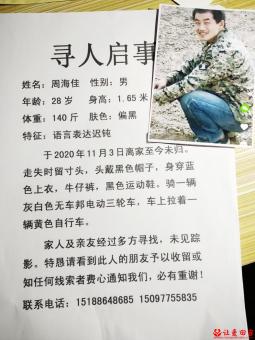 寻人启事
姓名：周海佳 性别：男
年龄：28 岁 身高：1.65 米
体重：140 斤 肤色：偏黑
特征：语言表达迟钝
于2020年11月3日离家至今未归。
走失时留寸头、头戴黑色帽子，身穿蓝
色上衣，牛仔裤，黑色运动鞋。骑一辆
灰白色无车邦电动三轮车，车上拉着一
辆黄色自行车。
家人及亲友经过多方寻找，未见踪
影。特恳请看到此人的朋友予以收留或
知任何线索者费心通知我们，必有重谢！
联系电话：15188648685 15097755835
让爱回家